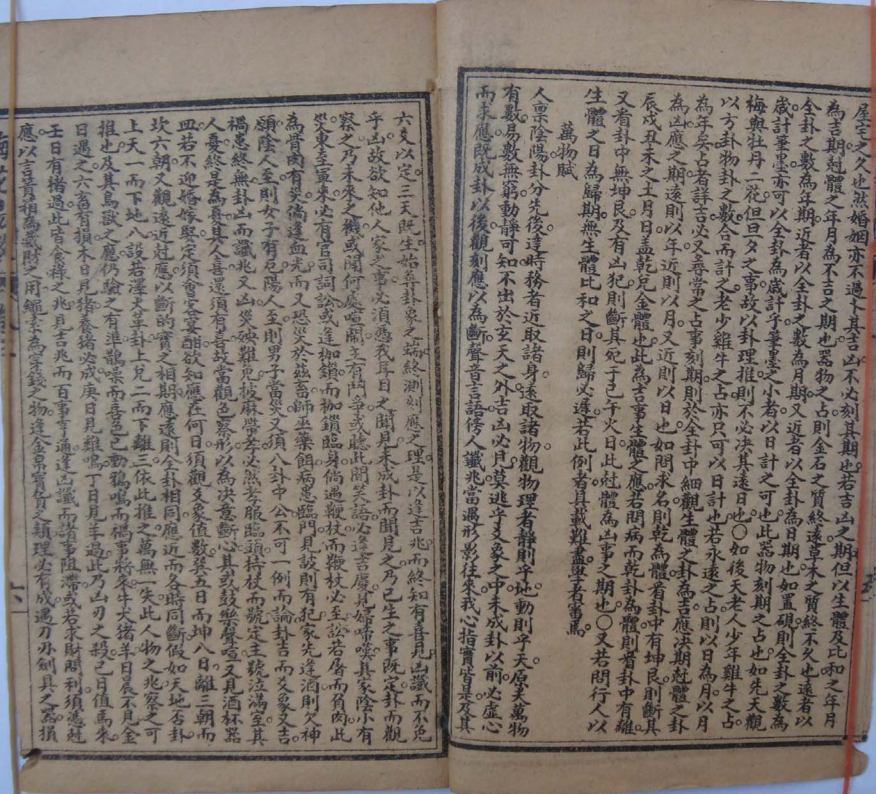 屋宅之久也然婚姻亦不過卜其吉凶不必刻其期也若吉凶之期但以生體及比和之年月
為吉期尅體之年月為不吉之期也器物之占則金石之質終遠草木之質終不久也遠者以
全卦之數為年期近者以全卦之數為月期又近者以全卦為日期也如置硯則全卦之數為
歲計筆墨亦可以全卦為歲計乎筆墨之小者以日計之可也此器物刻期之占也如先天觀
梅與牡丹二花但旦夕之事故以卦理推則不必決其遠日也〇如後天老人少年雞牛之占
以方卦物卦之數合而計之老少雞牛之占亦只可以日計也若永遠之占則以日為月以月
為年矣占者詳吉必又尋常之占事刻期則於全卦中細觀生體之卦為吉應決期尅體之卦
為凶應之期遠則以年近則以月又近則以日也如問求名則乾為體看卦中有坤艮則斷其
辰戌丑未之土月日蓋乾兌金體也此為吉事生體之應若問病而乾卦為體則看卦中有離
又看卦中無坤艮及有凶犯則斷其死于巳午火日此尅體為凶事之期也〇又若問行人以
生體之日為歸期無生體比和之日則歸必遲若此例者具載難盡學者審焉
萬物賦
人禀陰陽卦分先後達時務者近取諸身遠取諸物觀物理者靜則乎地動則乎天原夫萬物
有數易數無窮動靜可知不出於玄天之外吉凶必見莫逃乎爻象之中未成卦以前必虛心
而求應既成卦以後觀刻應以為斷聲音言語傍人讖兆當遇形影往來我心指實皆是及其
六爻以定三天既生始萃卦象之端終測刻應之理是以逢吉兆而終知有喜見凶讖而不免
乎凶故欲知他人家之事必須憑我耳目之聞見未成卦而聞見之乃已生之事既定卦而觀
察之乃未來之機或聞何處喧鬧主有鬥爭或聽此間笑語必逢吉慶見婦啼嘆其家陰小有
災東至軍來必有官司詞訟或逢枷鎖而枷鎖臨身倘遇鞭杖而鞭杖必至訟若屠而負肉此
為骨肉有災倘逢血光而又恐災於孳畜師巫藥餌病患臨門見誠則有犯家先逢酒則欠神
願陰人至則女子有厄陽人至則男子當災又須八卦中公不可一例而論卦吉而爻象又吉
禍患終無卦凶而讖兆又凶災殃難免披麻帶孝必然孝服臨頭持杖而號定主號泣滿至其
人憂終是為喜其人喜還須有喜故當觀色察形以為決意斷心其或鼓樂聲喧又見酒杯器
皿若不迎婚嫁娶定須會客宴酣欲知應在何日須觀爻象值數巽五日而坤八日離三朝而
坎六朝又觀遠近尅應以斷的實之相期應遠則全卦相同應近而各時同斷假如天地否卦
上天一而下地八設若澤火革卦上兌二而下離三依此推之萬無一失此人物之兆察之可
推也及其鳥獸之應仍驗之有準鵲噪而喜色已動鴉鳴而禍事將來牛犬猪羊日晨不見金
日遇之六畜有損木日見猪養猪必成庚日見雞鳴丁日見羊過此乃凶刃之殺己日值馬來
壬日有猪過此皆食祿之兆見吉兆而百事亨通逢凶讖而諸事阻滯或若求財問利須憑尅
應以言責箱為藏財之用繩索為穿錢之物逢金帛寶貨之類理必有成遇刀刃劍具之器損